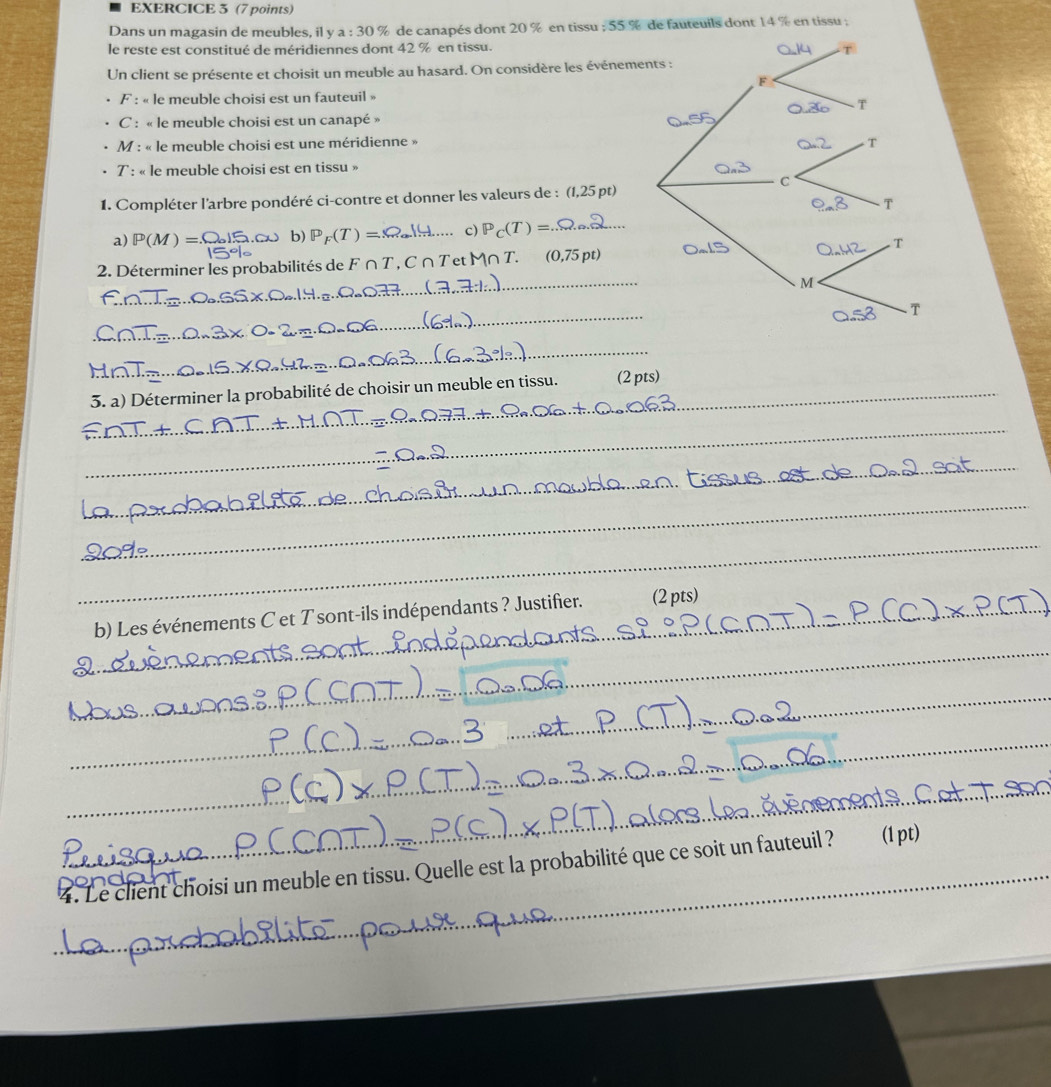 ■ EXERCICE 3 (7 points)
Dans un magasin de meubles, il y a : 30 % de canapés dont 20 % en tissu ; 55 % de fauteuils dont 14 % en tissu ;
le reste est constitué de méridiennes dont 42 % en tissu.
Un client se présente et choisit un meuble au hasard. On considère les événements :
• F : « le meuble choisi est un fauteuil »
• C : « le meuble choisi est un canapé »
• M : « le meuble choisi est une méridienne »
• T : « le meuble choisi est en tissu »
0.14 T
F
0.55 0.86 T̅
0.2 T
0.3 C
0.8 T̅
0.15 0.42 T
M
0.58 T̅
1. Compléter l'arbre pondéré ci-contre et donner les valeurs de : (1,25 pt)
a) ℙ(M) = 0.15 ou b) ℙ_F(T) = 0.14 c) ℙ_C(T) = 0.2
15%
2. Déterminer les probabilités de F ∩ T, C ∩ T et M ∩ T. (0,75 pt)
F∩T = 0.55 x 0.14 = 0.077 (7.7%)
C∩T = 0.3 x 0.2 = 0.06 (6%)
M∩T = 0.15 x 0.42 = 0.063 (6.3%)
3. a) Déterminer la probabilité de choisir un meuble en tissu. (2 pts)
F∩T + C∩T + M∩T = 0.077 + 0.06 + 0.063
= 0.2
la probabilité de choisir un meuble en tissus est de 0.2 soit
20%
b) Les événements C et T sont-ils indépendants ? Justifier. (2 pts)
2 évènements sont indépendants si : P(C∩T) = P(C) x P(T)
Nous avons : P(C∩T) = 0.06
P(C) = 0.3 et P(T) = 0.2
P(C) x P(T) = 0.3 x 0.2 = 0.06
Puisque P(C∩T) = P(C) x P(T) alors les évènements C et T son
pendant.
4. Le client choisi un meuble en tissu. Quelle est la probabilité que ce soit un fauteuil ? (1 pt)
la probabilité pour que